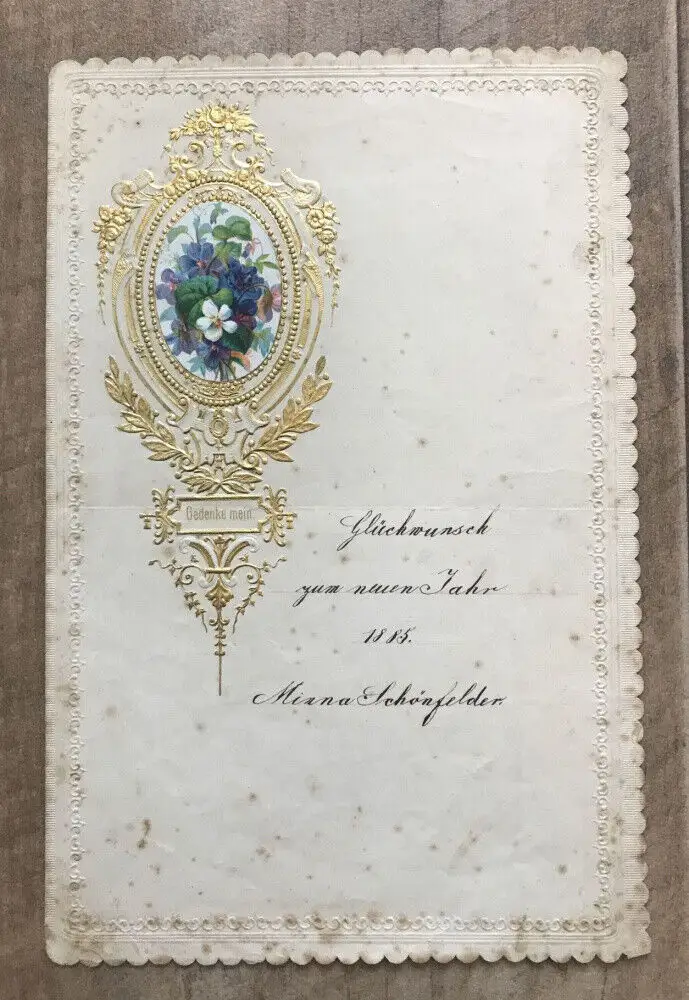 Gedenke mein.
Glückwunsch
zum neuen Jahr
1885.
Minna Schönfelder.